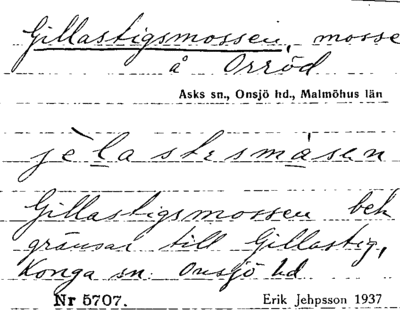 Gillastigsmossen, mosse
å Orröd
Asks sn., Onsjö hd., Malmöhus län
jèla stıesmåsen
Gillastigsmossen beh
gränsar till Gillastig,
Konga sn. Onsjö hd
Nr 5707. Erik Jehpsson 1937